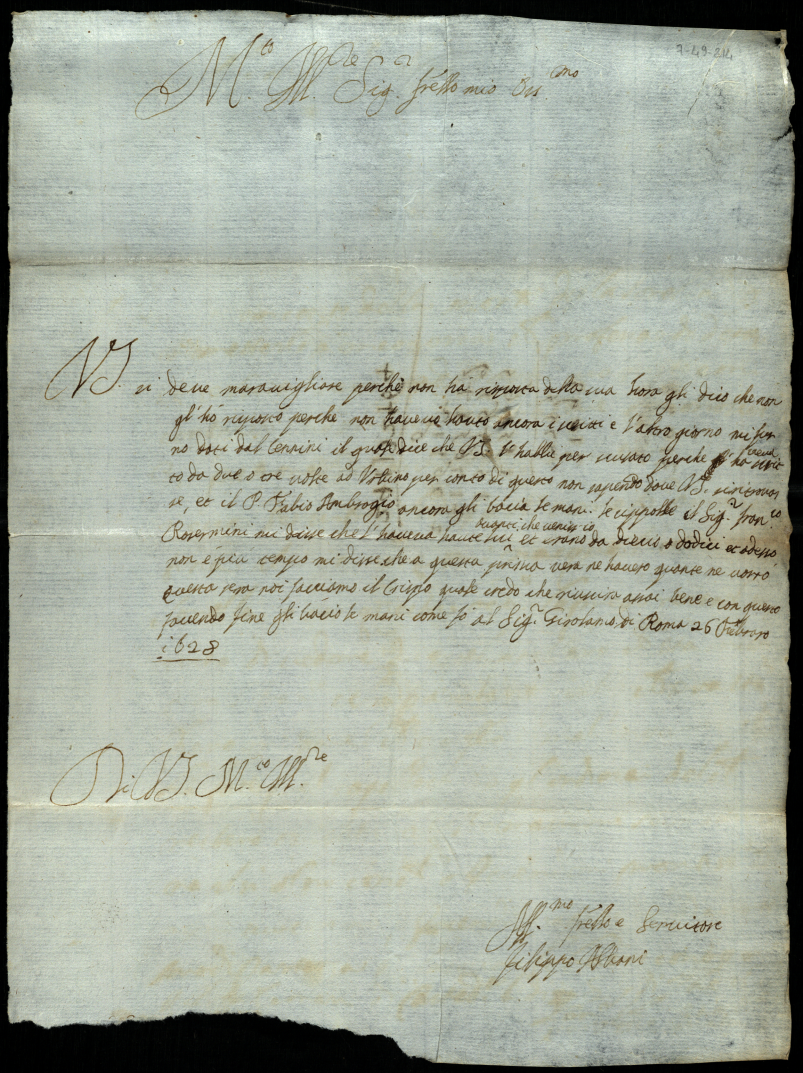 7-49-214
M.co Ill.re Sig.r frello mio Oss.mo
VS. si deve maravigliare perche non ha risposta della sua hora gli dico che non
gl'ho risposto perche non havevo havuto ancora i e l'altro giorno mi fur
no dati dal Cennini il quale dice che VS. l'habbia per scusato perche ha scrit
to da due o tre volte ad Urbino per conto di questo non sapendo dove VS. si ritrovas
se, et il P. Fabio Ambrogio ancora gli bacia le mani. le il Sig.r Fran.co
Rosermini mi disse che l'haveva havute lui et erano da dieci o dodici et adesso
non è più tempo mi disse che a questa prima vera ne havero quante ne vorrò
questa sera noi facciamo il Crispo quale credo che riuscira assai bene e con questo
facendo fine gli bacio le mani come fo al Sig.r Girolamo, di Roma 26 Febraro
1628
Di VS. M.co Ill.re
Aff.mo frello e Servitore
Filippo Albani